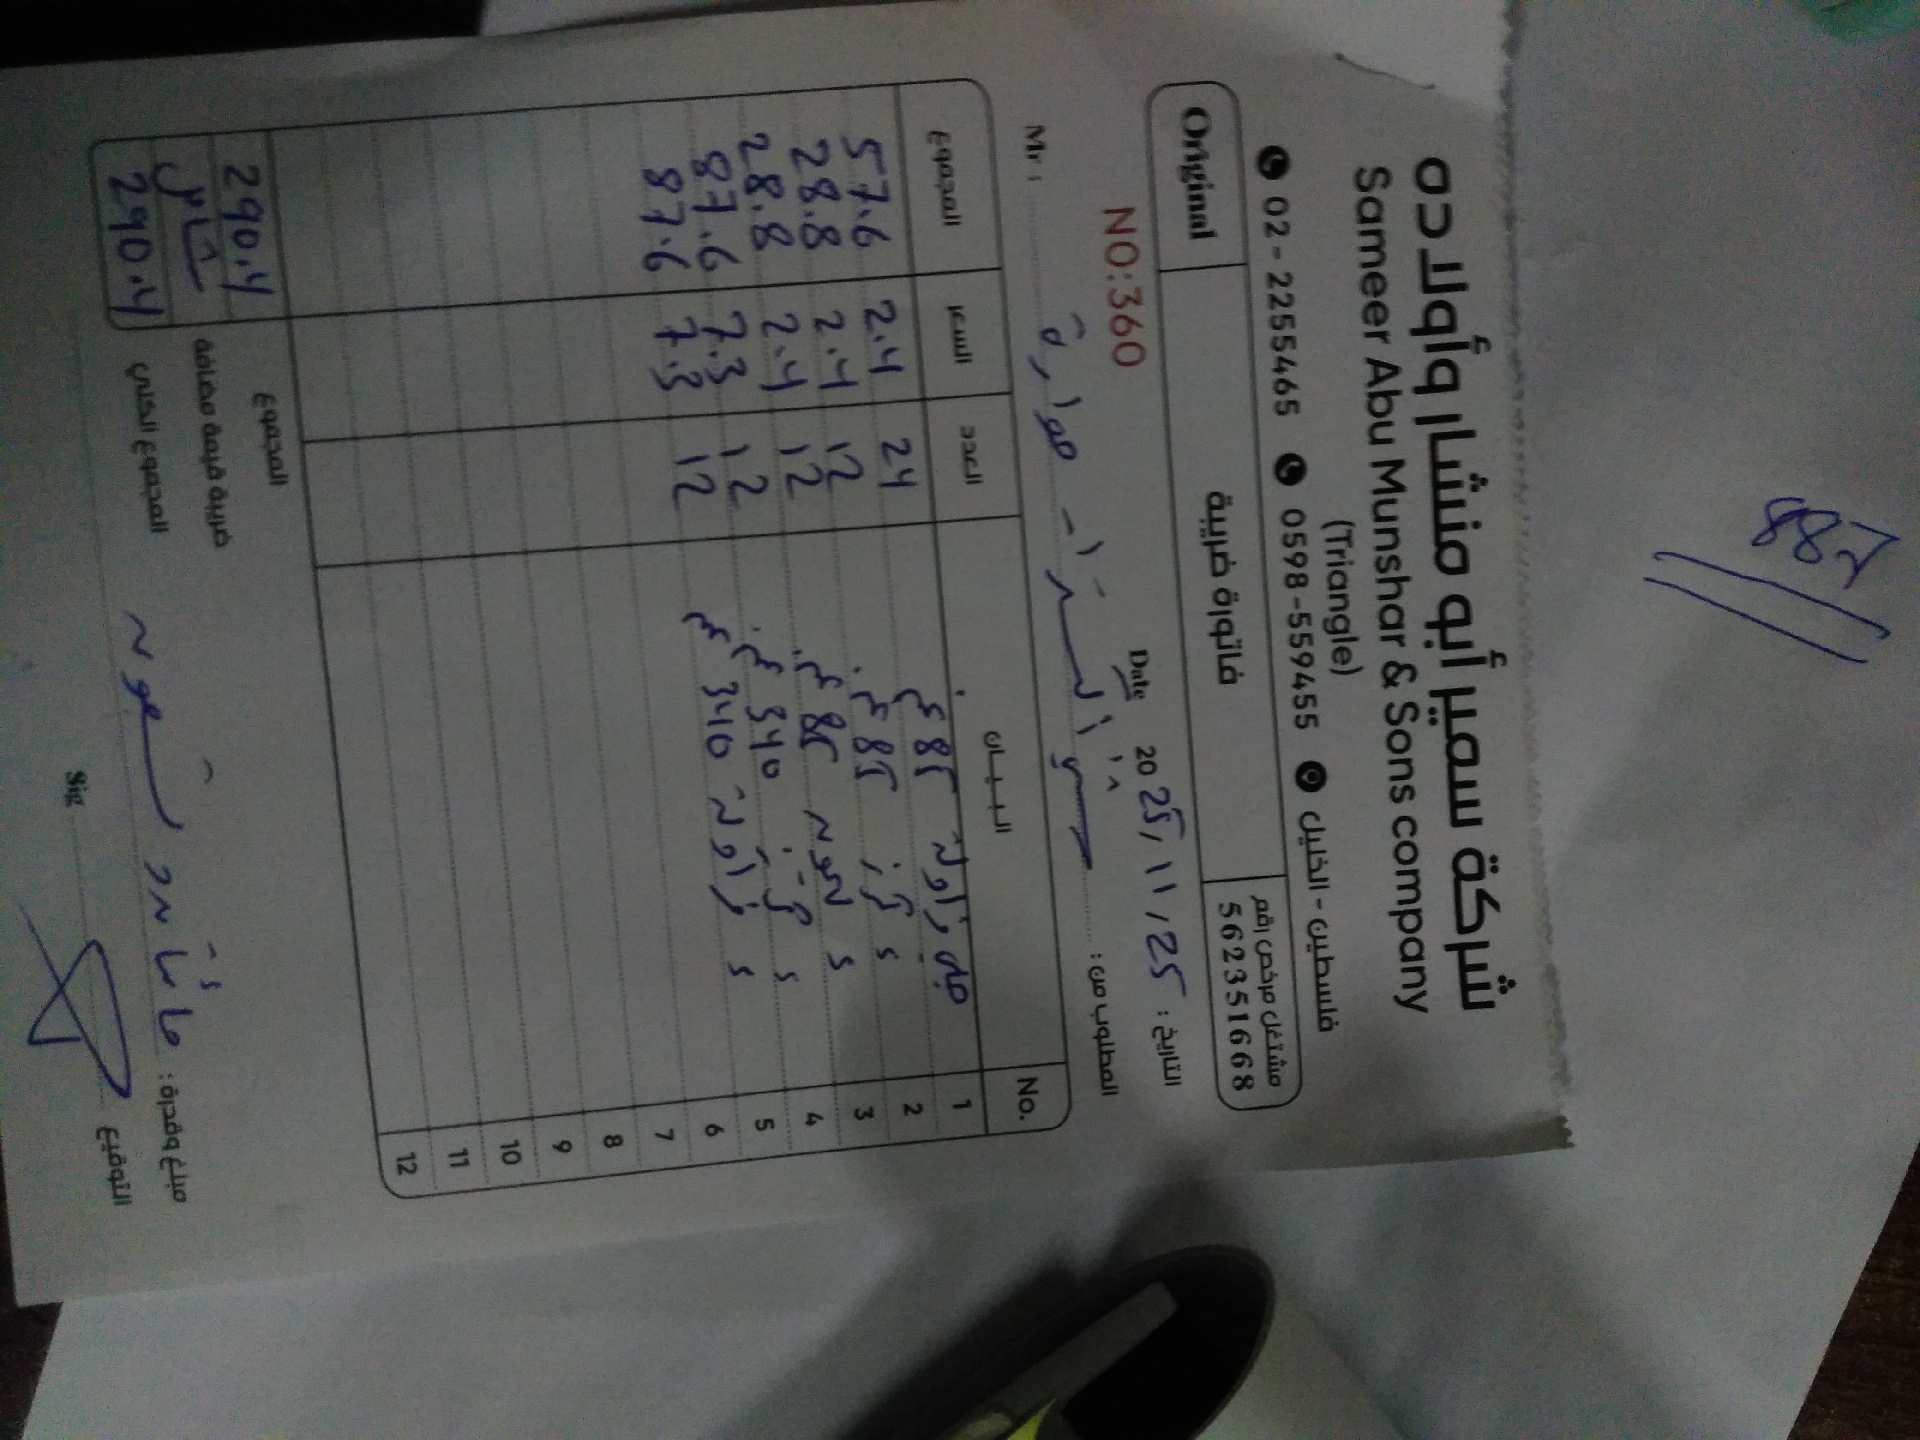 887
شركة سمير أبو منشار وأولاده
Sameer Abu Munshar & Sons company
(Triangle)
فلسطين - الخليل 0598-559455 02-2255465
مشتغل مرخص رقم
562351668
فاتورة ضريبية
Original
التاريخ: 25 / 11 / 2025 Date
NO:360
المطلوب من: Mr:
No. البيان العدد السعر المجموع
1 85 غم 24 2.4 57.6
2 85 غم 12 2.4 28.8
3 85 غم 12 2.4 28.8
4 340 غم 12 7.3 87.6
5 340 غم 12 7.3 87.6
6
7
8
9
10
11
12
المجموع 290.4
ضريبة قيمة مضافة شامل
المجموع الكلي 290.4
مبلغ وقدرة:
التوقيع Sig